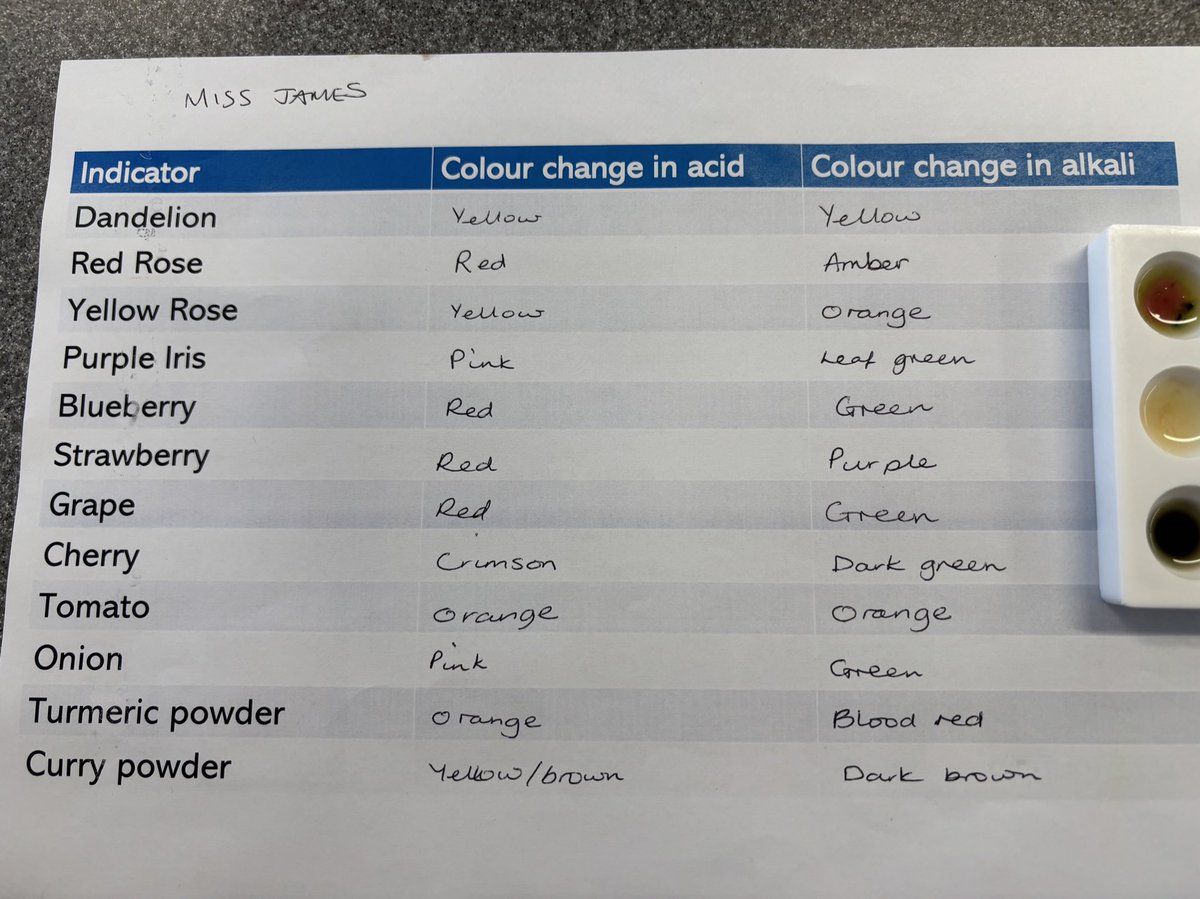 MISS JAMES
Indicator Colour change in acid Colour change in alkali
Dandelion Yellow Yellow
Red Rose Red Amber
Yellow Rose Yellow Orange
Purple Iris Pink Leaf green
Blueberry Red Green
Strawberry Red Purple
Grape Red Green
Cherry Crimson Dark green
Tomato Orange Orange
Onion Pink Green
Turmeric powder Orange Blood red
Curry powder Yellow/brown Dark brown